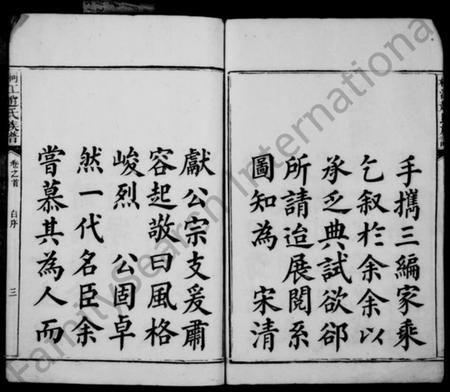 手攜三編家乘
乞叙於余余以
承乏典試欲郤
所請迨展閱系
圖知為 宋清
獻公宗支爰肅
容起敬曰風格
峻烈 公固卓
然一代名臣余
嘗慕其為人而
江 氏族譜
卷之首 自序 三
FamilySearch International